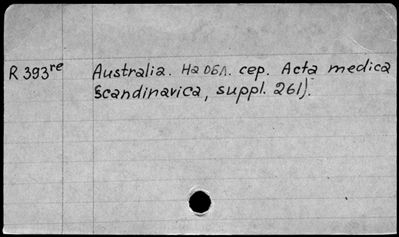 R 393re Australia. На обл. сер. Acta medica
Scandinavica, suppl. 261).